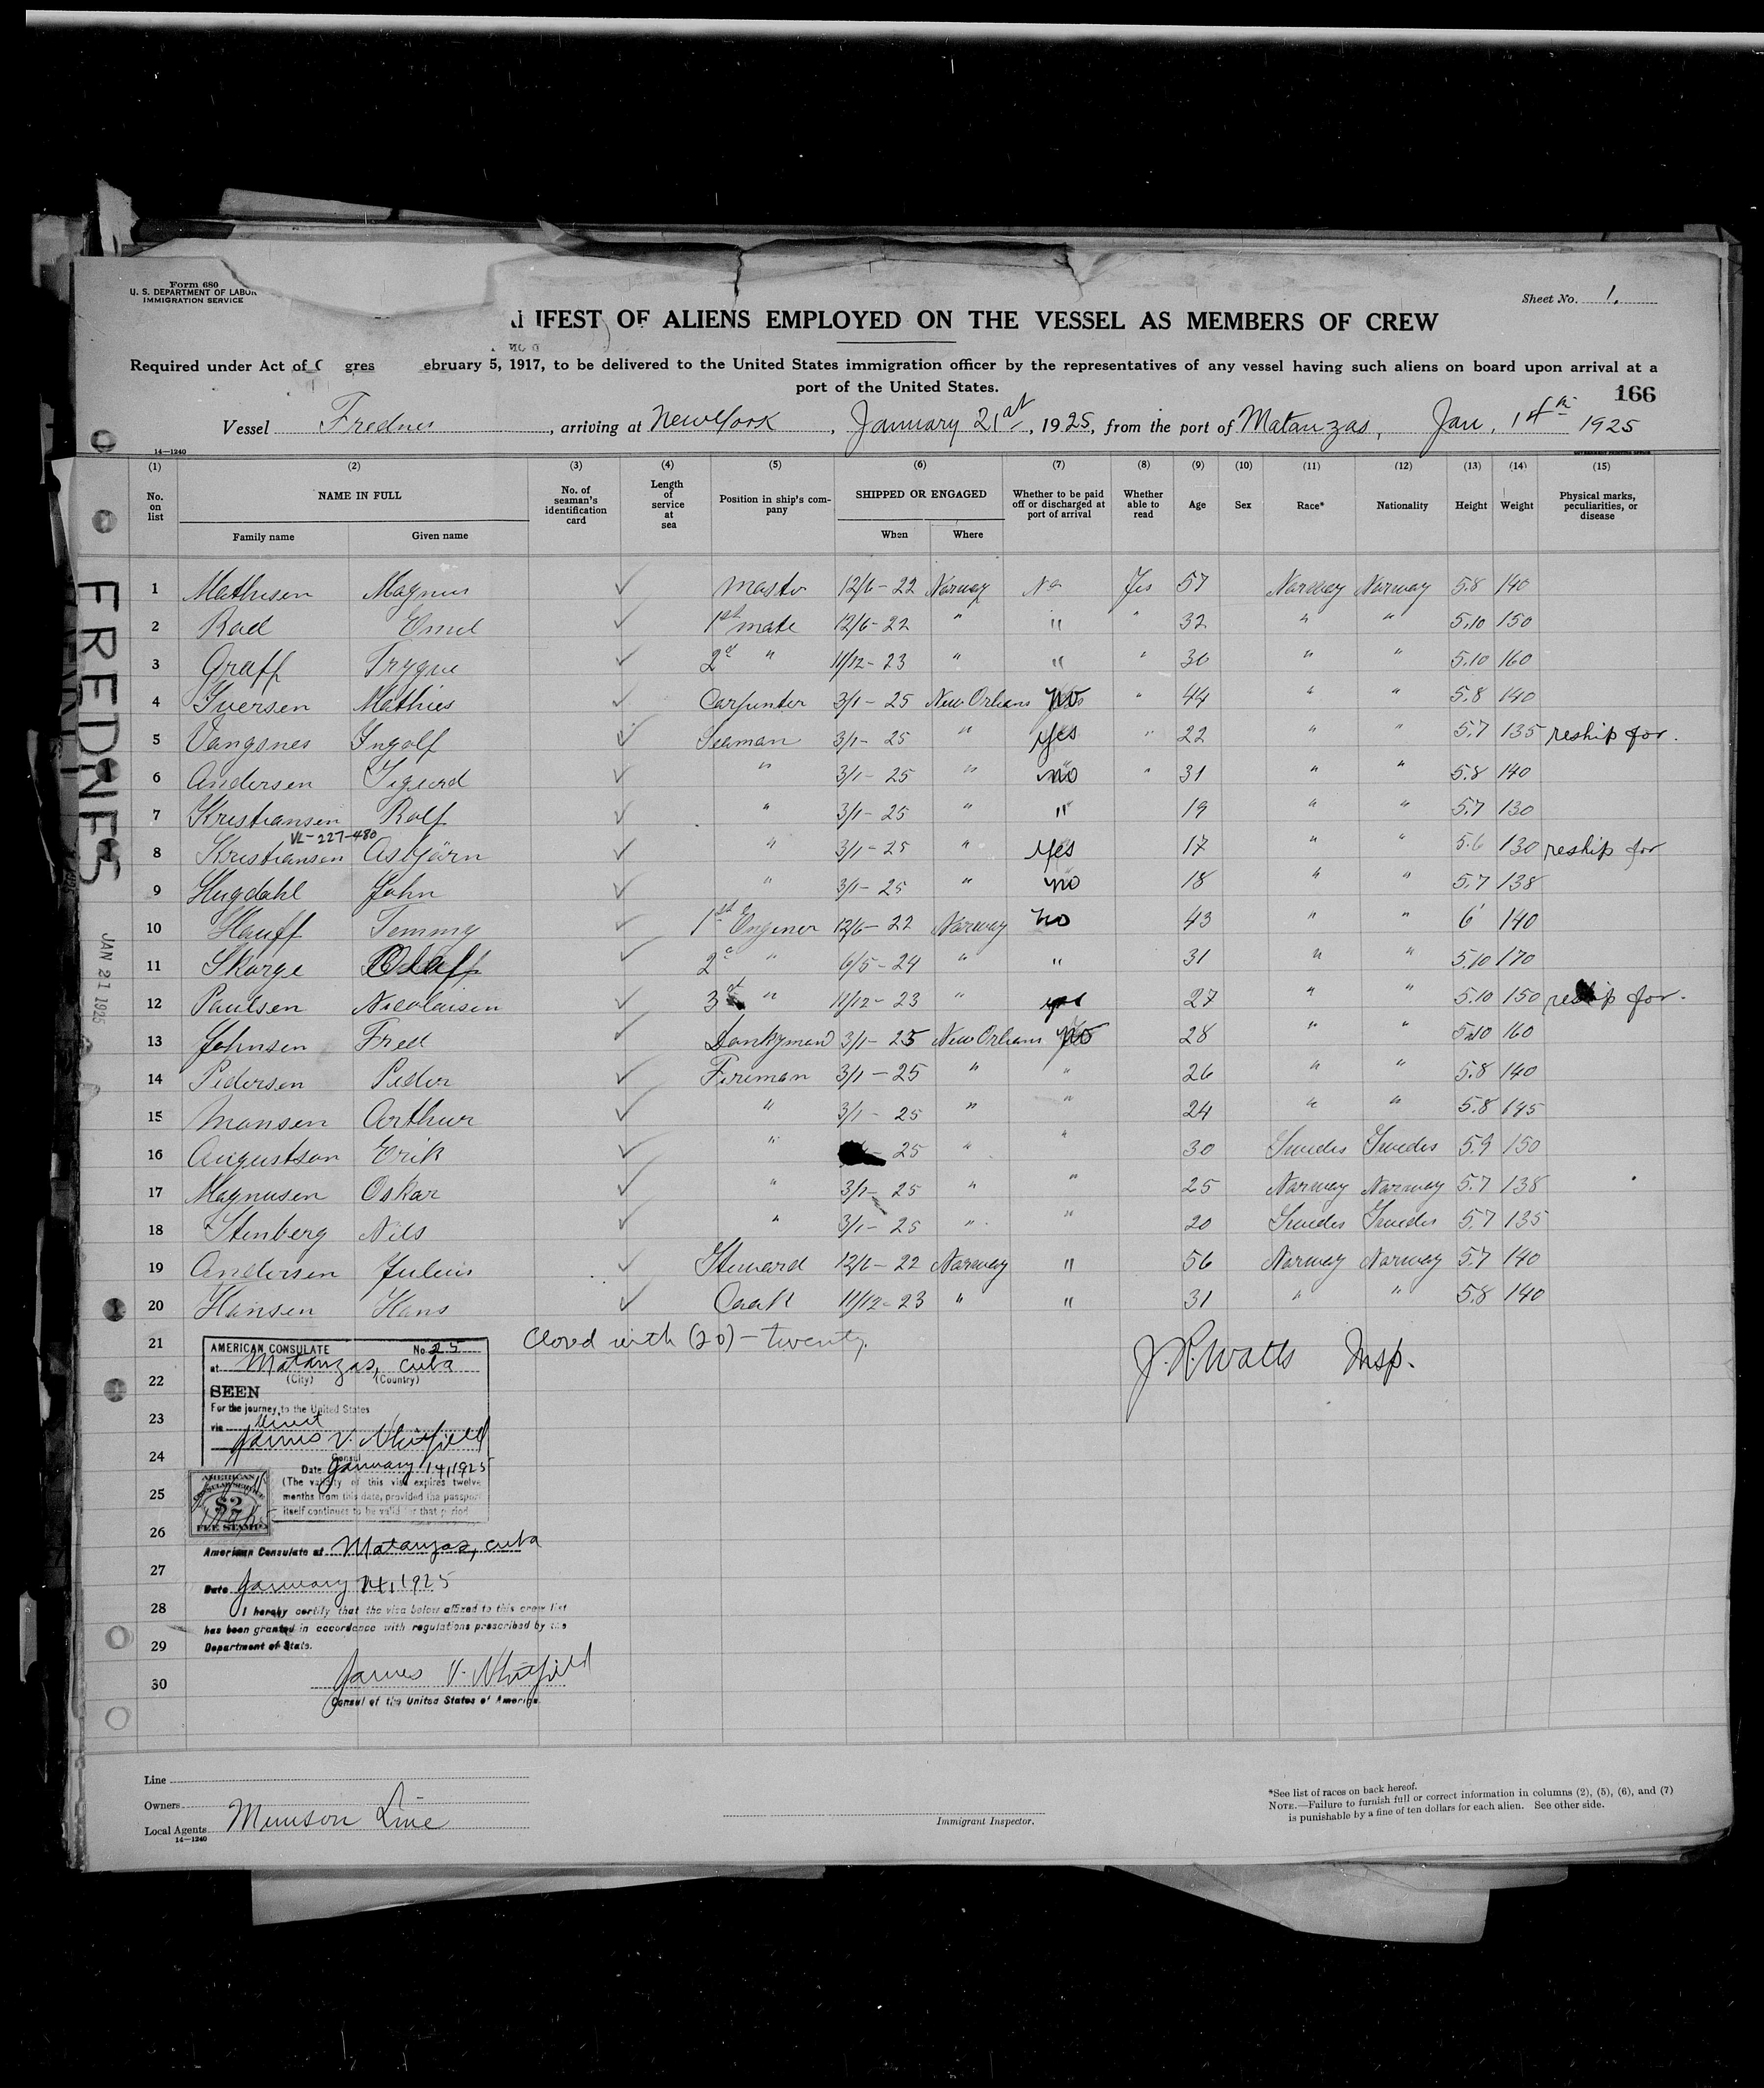 Form 680
U. S. DEPARTMENT OF LABOR
IMMIGRATION SERVICE
Sheet No. 1.
IFEST OF ALIENS EMPLOYED ON THE VESSEL AS MEMBERS OF CREW
Required under Act of C gres ebruary 5, 1917, to be delivered to the United States immigration officer by the representatives of any vessel having such aliens on board upon arrival at a
port of the United States.
166
Vessel Frednes, arriving at New York, January 21st, 1925, from the port of Matanzas, Jan. 14th 1925
14—1240
(1) (2) (3) (4) (5) (6) (7) (8) (9) (10) (11) (12) (13) (14) (15)
No. on list NAME IN FULL No. of seaman's identification card Length of service at sea Position in ship's company SHIPPED OR ENGAGED Whether to be paid off or discharged at port of arrival Whether able to read Age Sex Race* Nationality Height Weight Physical marks, peculiarities, or disease
Family name Given name When Where
1 Mathisen Magnus ✓ Master 12/6-22 Norway No Yes 57 Norway Norway 5.8 140
2 Rad Emil ✓ 1st mate 12/6-22 " " " 32 " " 5.10 150
3 Graff Trygve ✓ 2d " 11/12-23 " " " 30 " " 5.10 160
4 Iversen Mathies ✓ Carpenter 3/1-25 New Orleans no " 44 " " 5.8 140
5 Vangsnes Ingolf ✓ Seaman 3/1-25 " yes " 22 " " 5.7 135 reship for.
6 Andersen Sigurd ✓ " 3/1-25 " no " 31 " " 5.8 140
7 Kristiansen Rolf ✓ " 3/1-25 " " 19 " " 5.7 130
VL-227-480
8 Kristiansen Asbjørn ✓ " 3/1-25 " yes 17 " " 5.6 130 reship for
9 Hugdahl John ✓ " 3/1-25 " no 18 " " 5.7 138
10 Hauff Temmy ✓ 1st Enginer 12/6-22 Norway no 43 " " 6' 140
11 Skorge Olaff ✓ 2d " 6/5-24 " " 31 " " 5.10 170
12 Paulsen Nicolaisen ✓ 3d " 11/12-23 " yes 27 " " 5.10 150 reship for.
13 Johnsen Fred ✓ Donkyman 3/1-25 New Orleans no 28 " " 5.10 160
14 Pedersen Peder ✓ Fireman 3/1-25 " " 26 " " 5.8 140
15 Monsen Arthur ✓ " 3/1-25 " " 24 " " 5.8 145
16 Augustson Erik ✓ " 25 " " 30 Swedes Swedes 5.9 150
17 Magnusen Oskar ✓ " 3/1-25 " " 25 Norway Norway 5.7 138
18 Stenberg Nils ✓ " 3/1-25 " " 20 Swedes Swedes 5.7 135
19 Andersen Julius ✓ Steward 12/6-22 Norway " 56 Norway Norway 5.7 140
20 Hansen Hans ✓ Cook 11/12-23 " " 31 " " 5.8 140
21 Closed with (20) - twenty.
J. R. Watts Insp.
22
23
24
25
26
27
28
29
30
AMERICAN CONSULATE No. 25
at Matanzas, Cuba
(City) (Country)
SEEN
For the journey to the United States
via direct
James V. Whitfield
Consul
Date January 14, 1925
(The validity of this visa expires twelve
months from this date, provided the passport
itself continues to be valid for that period
AMERICAN
CONSULAR SERVICE
$2
FEE STAMP
American Consulate at Matanzas, Cuba
Date January 14, 1925
I hereby certify that the visa below affixed to this crew list
has been granted in accordance with regulations prescribed by the
Department of State.
James V. Whitfield
Consul of the United States of America.
FREDNES
JAN 21 1925
Line
Owners
Local Agents Munson Line
14—1240
Immigrant Inspector.
*See list of races on back hereof.
NOTE.—Failure to furnish full or correct information in columns (2), (5), (6), and (7)
is punishable by a fine of ten dollars for each alien. See other side.